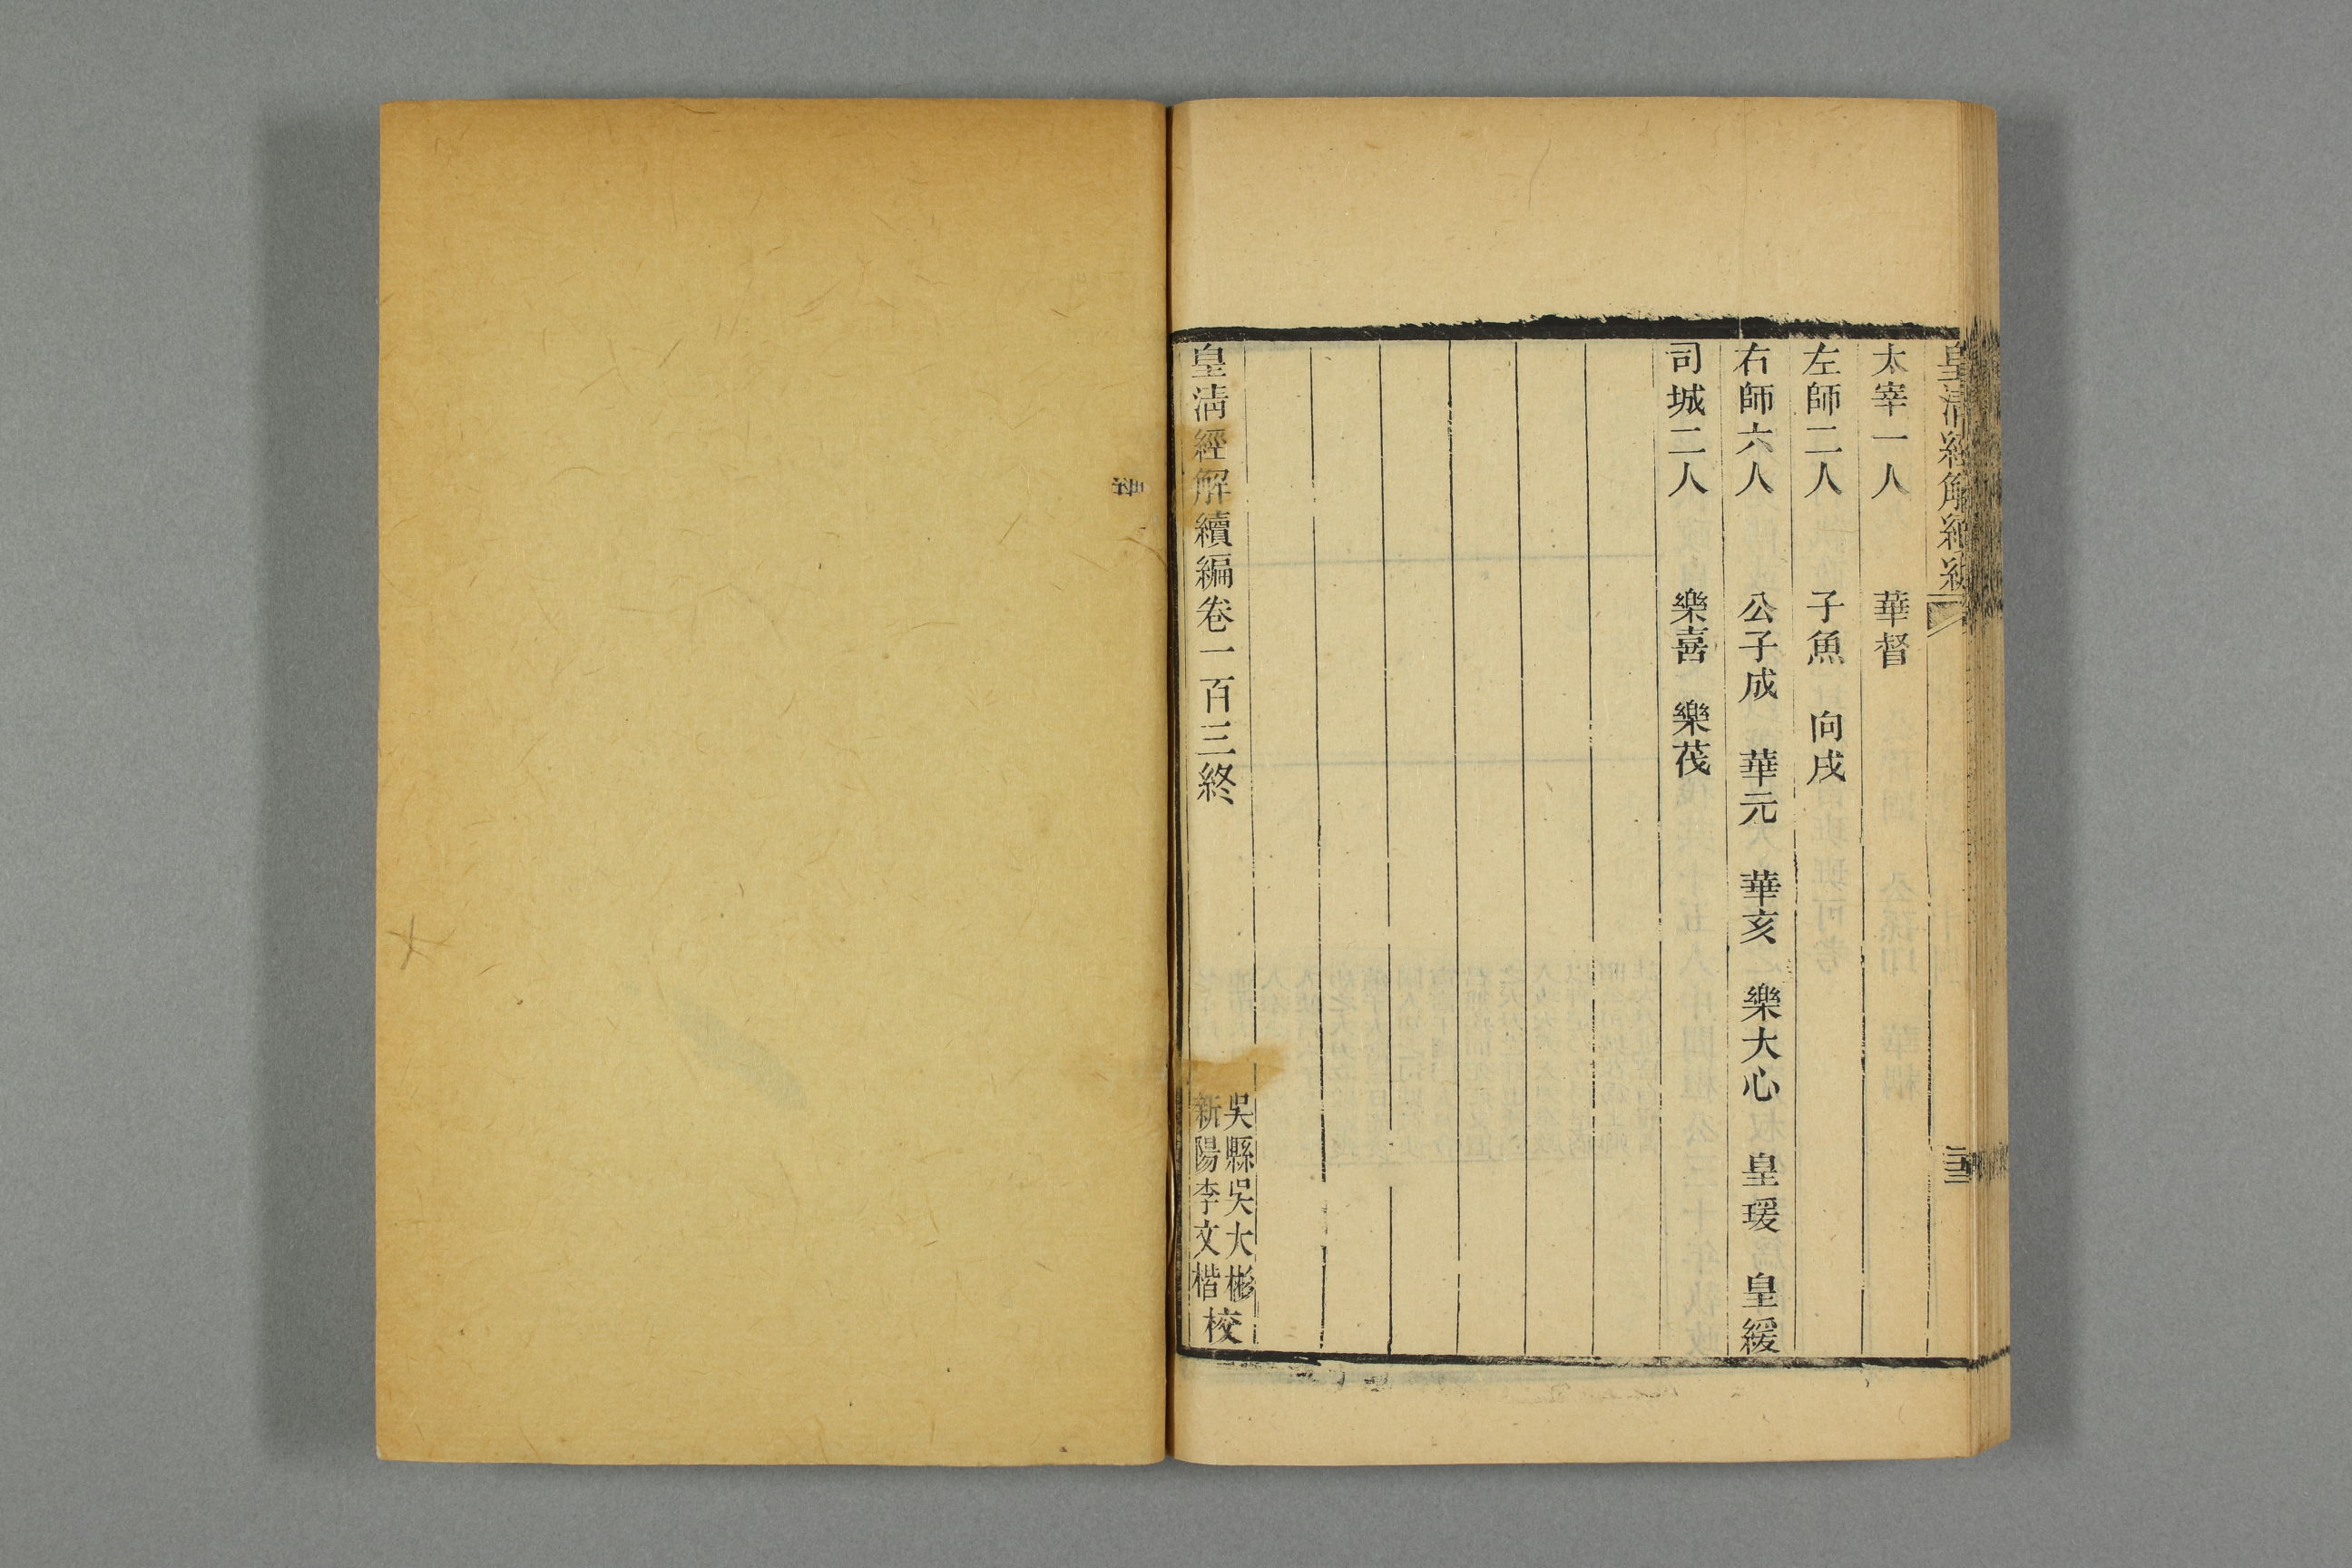 皇清經解續編
太宰一人　華督
左師二人　子魚　向戌
右師六人　公子成　華元　華亥　樂大心　皇瑗　皇緩
司城二人　樂喜　樂茷
皇清經解續編卷一百三終
吳縣吳大彬
新陽李文楷
校